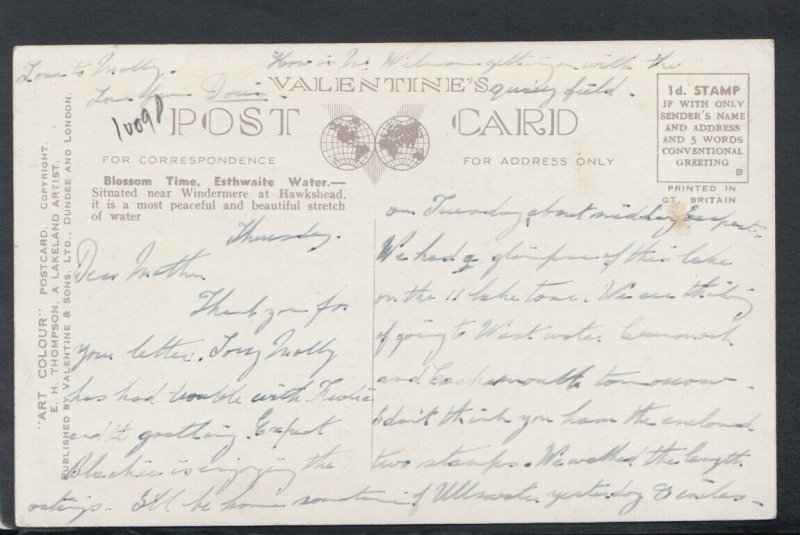 Love to Molly.
Love from Doris.
How is Mr. getting on with the
quarry field.
10098
VALENTINE'S
POST CARD
FOR CORRESPONDENCE
FOR ADDRESS ONLY
1d. STAMP
IF WITH ONLY
SENDER'S NAME
AND ADDRESS
AND 5 WORDS
CONVENTIONAL
GREETING
B
PRINTED IN
GT. BRITAIN.
"ART COLOUR" POSTCARD. COPYRIGHT.
E. H. THOMPSON, A LAKELAND ARTIST.
PUBLISHED BY VALENTINE & SONS, LTD., DUNDEE AND LONDON.
Blossom Time, Esthwaite Water.—
Situated near Windermere at Hawkshead,
it is a most peaceful and beautiful stretch
of water
Thursday.
Dear Mother
Thank you for
your letter. Sorry Molly
has had trouble with
and Expect
Blackie is enjoying the
outings. I'll be home sometime
on Tuesday about midday I expect.
We had a glimpse of this lake
on the 11 lake tour. We are thinking
of going to Wast water
and Cockermouth tomorrow.
I don't think you have the enclosed
two stamps. We walked the length
of Ullswater yesterday 8 miles.